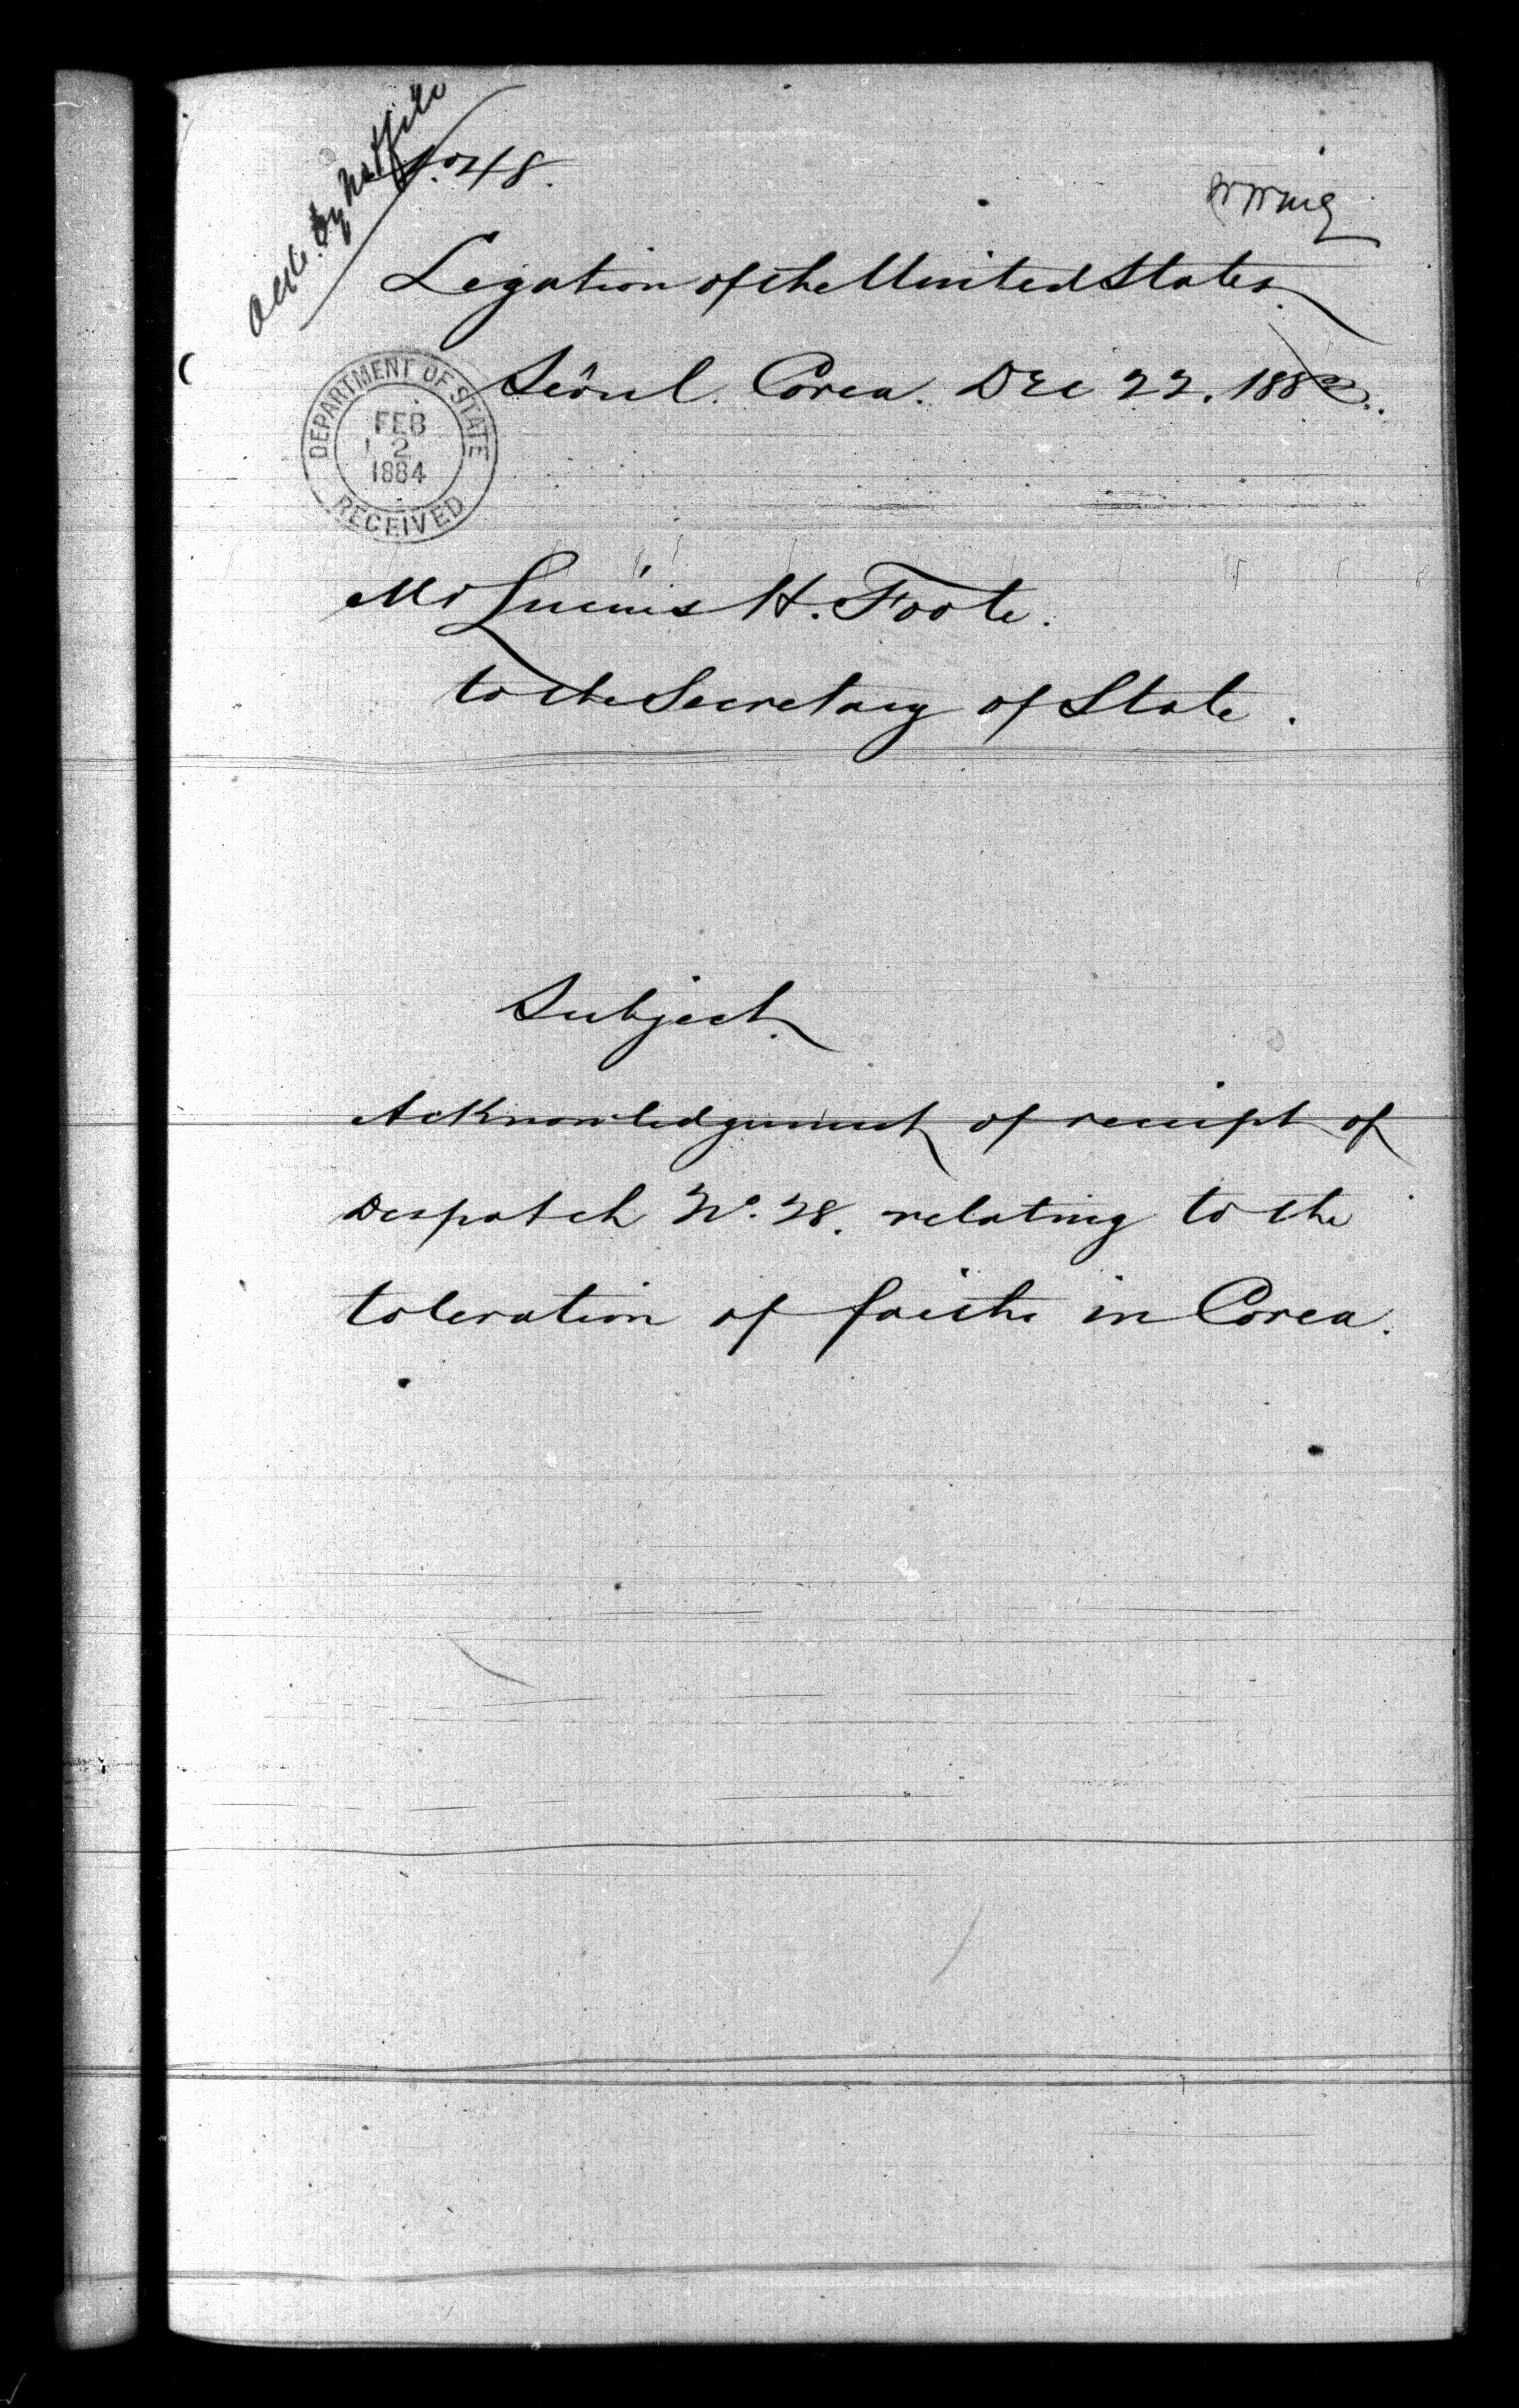 No. 48.
Legation of the United States.
Seôul. Corea. Dec 22. 1883.
DEPARTMENT OF STATE
FEB
2
1884
RECEIVED
Mr Lucius H. Foote.
to the Secretary of State.
Subject.
Acknowledgement of receipt of
Despatch No. 28. relating to the
toleration of faiths in Corea.